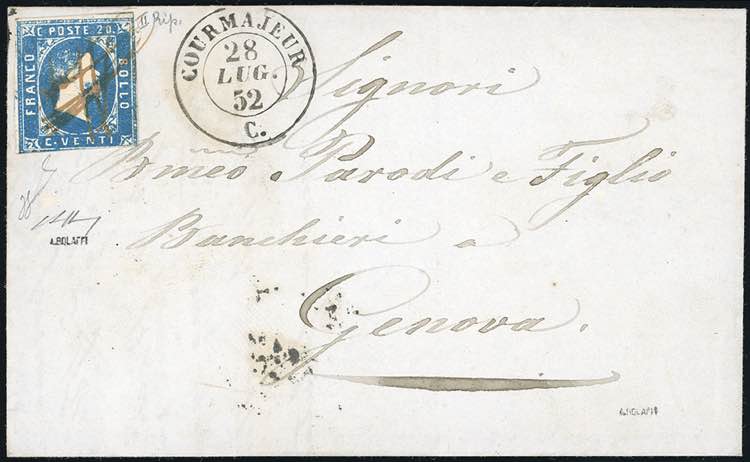 C POSTE 20.
FRANCO
BOLLO
C. VENTI
II Rip.
COURMAJEUR
28
LUG.
52
C.
Signori
Bmeo Parodi e Figlio
Banchieri a
Genova.
A.BOLAFFI
A.BOLAFFI